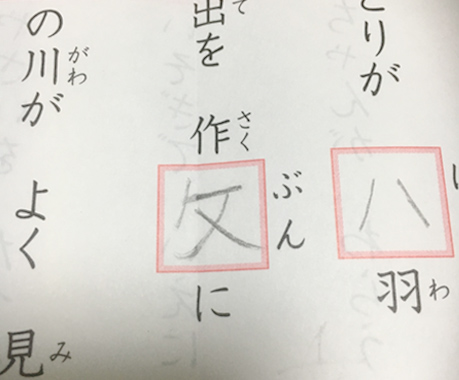 とりが 八羽わ
出でを 作さく文ぶんに
の川がわが よく 見み